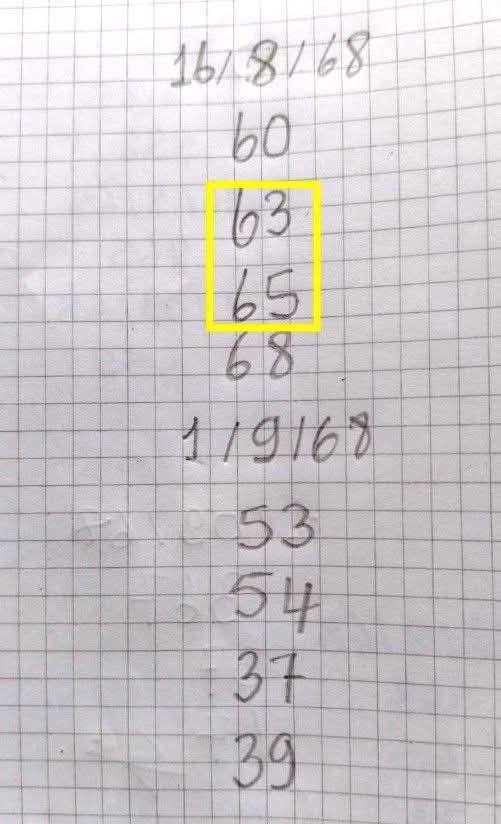 16/8/68
60
63
65
68
1/9/68
53
54
37
39